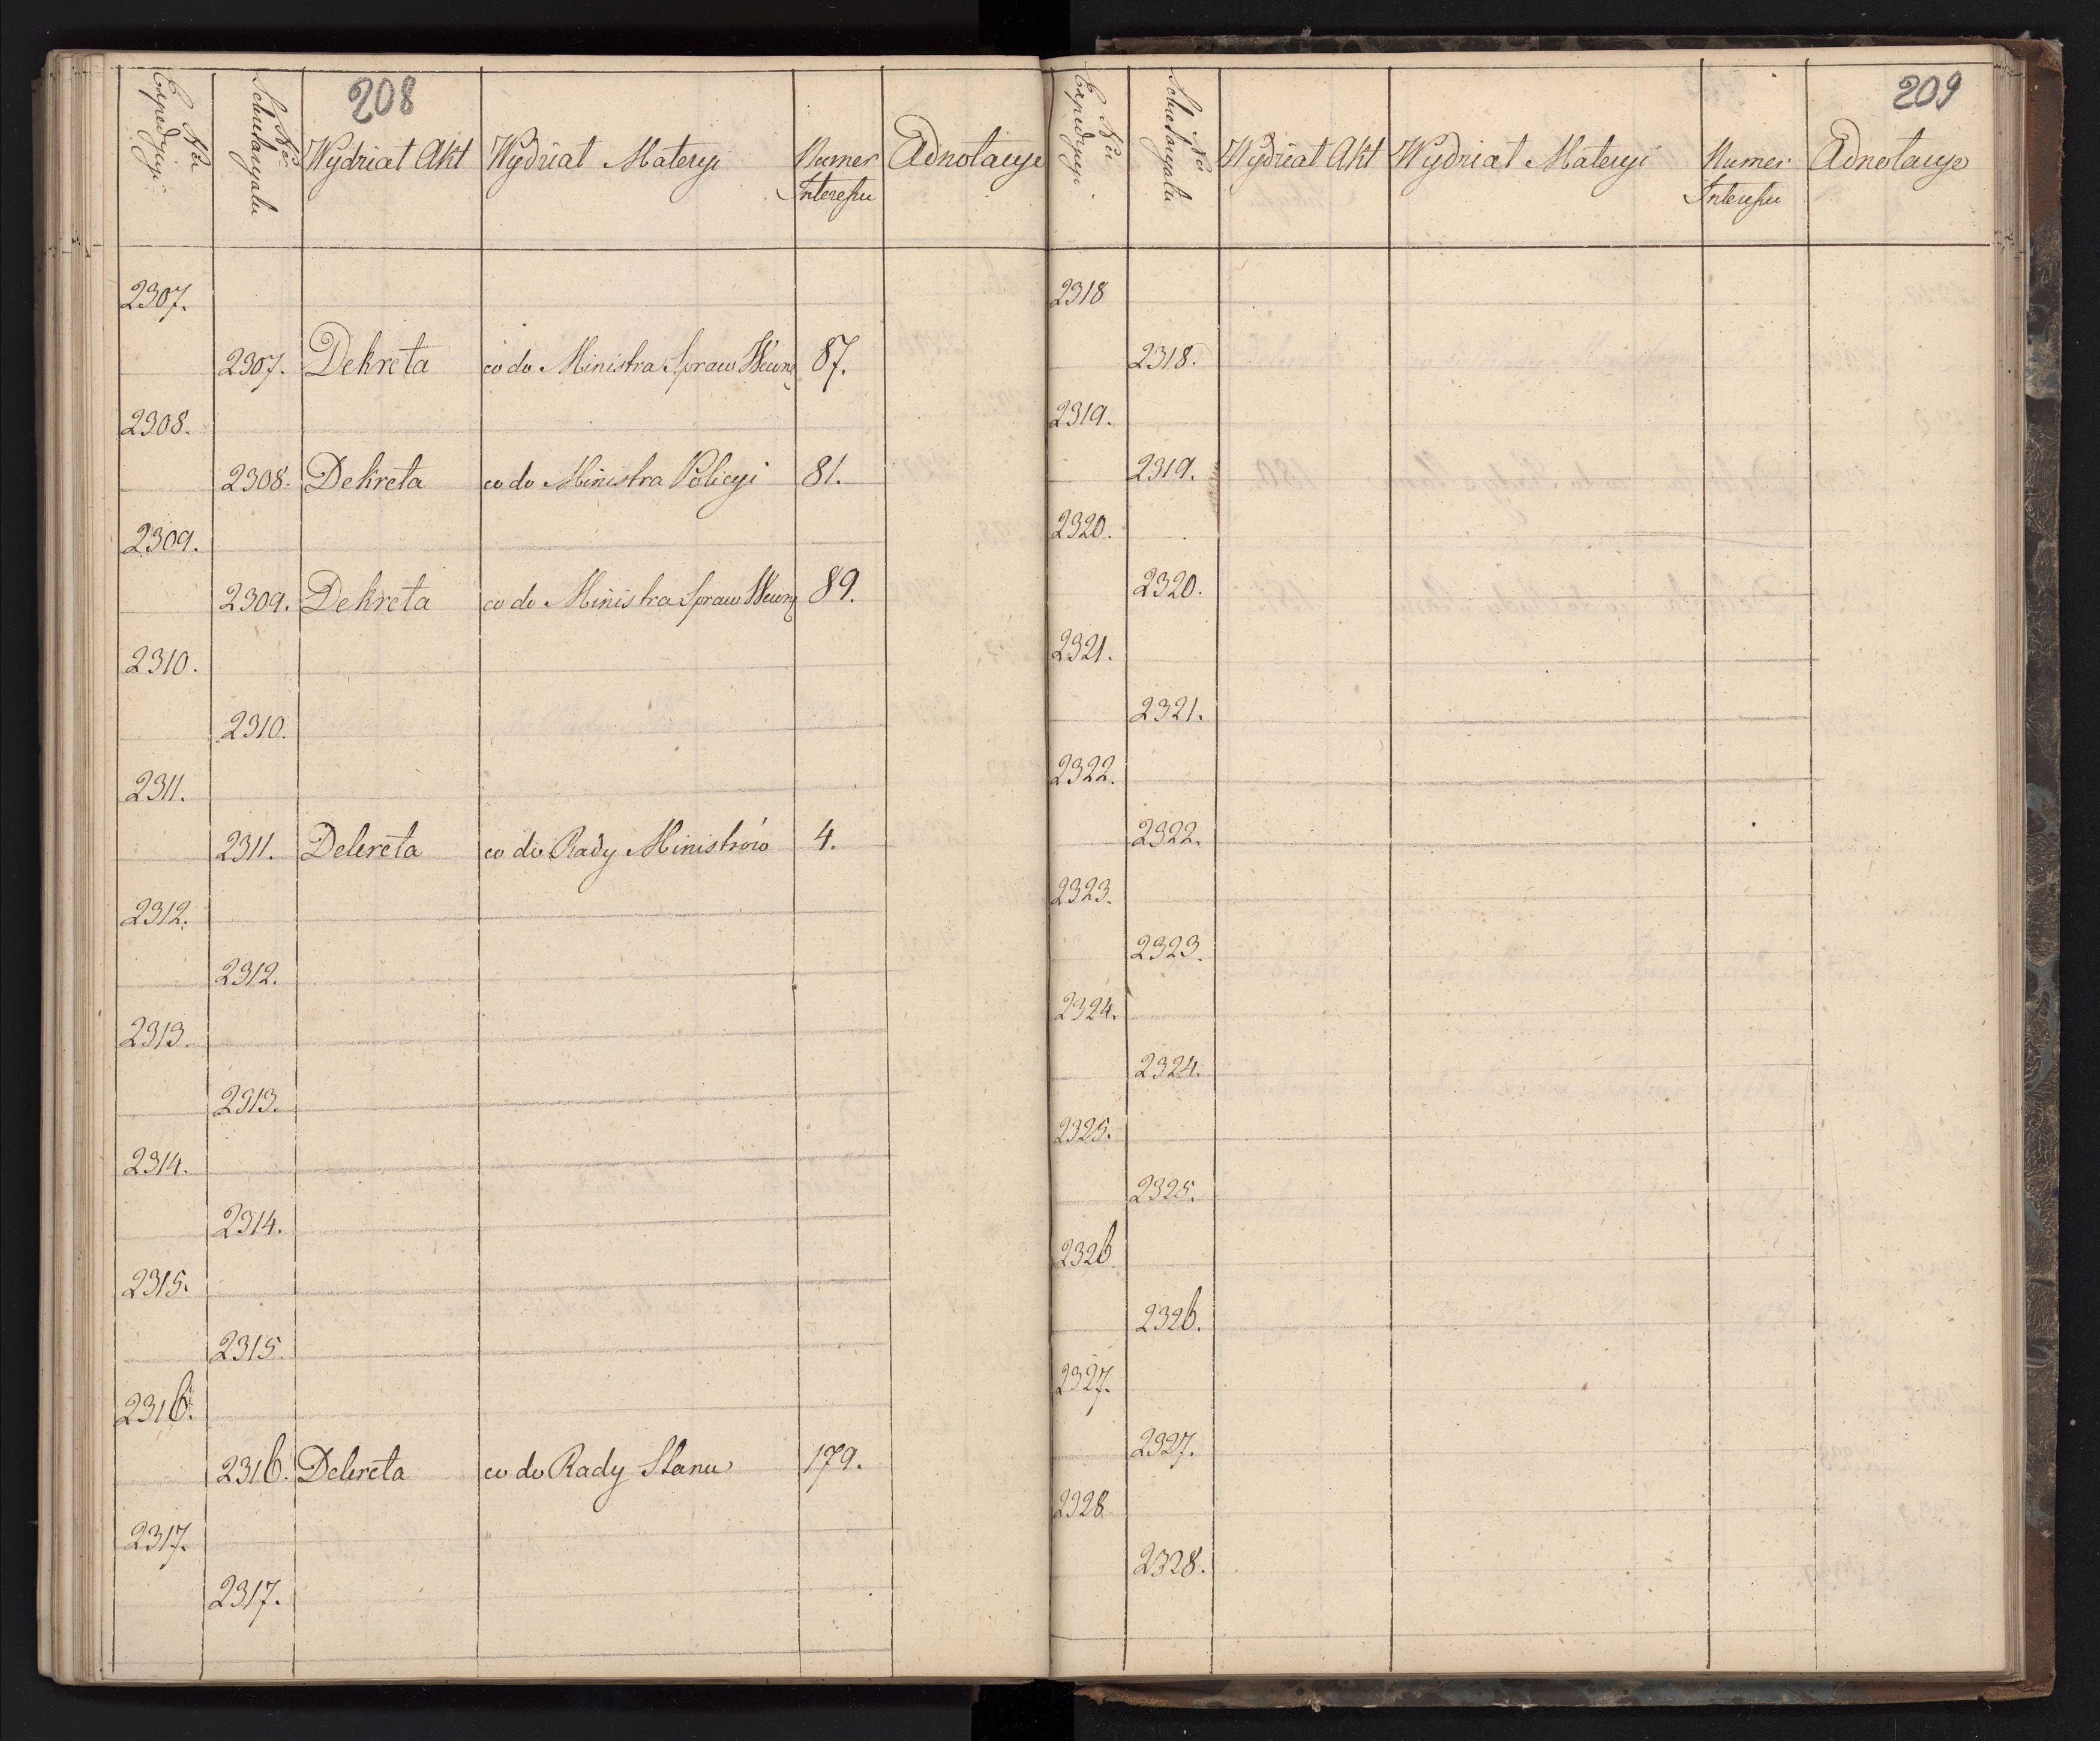 208
Nro Expedycyi
Nro Sekretaryatu
Wydział Akt
Wydział Materyi
Numer Interessu
Adnotacye
2307.
2307. Dekreta co do Ministra Spraw Wewn 87.
2308.
2308. Dekreta co do Ministra Policyi 81.
2309.
2309. Dekreta co do Ministra Spraw Wewn 89.
2310.
2310.
2311.
2311. Dekreta co do Rady Ministrów 4.
2312.
2312.
2313.
2313.
2314.
2314.
2315.
2315.
2316.
2316. Dekreta co do Rady Stanu 179.
2317.
2317.
209
Nro Expedycyi
Nro Sekretaryatu
Wydział Akt
Wydział Materyi
Numer Interessu
Adnotacye
2318
2318.
2319.
2319.
2320.
2320.
2321.
2321.
2322.
2322.
2323.
2323.
2324.
2324.
2325.
2325.
2326.
2326.
2327.
2327.
2328
2328.